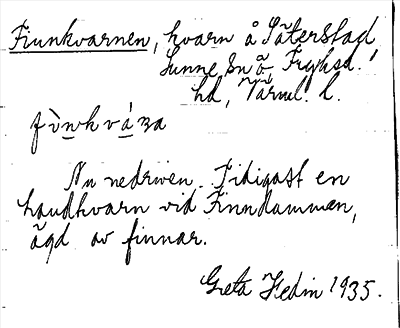 Finnkvarnen, kvarn å Säterstad
Sunne sn å Fryksd.
hd, Värml. l.
Nu nedriven. Tidigast en
handkvarn vid Finndammen,
ägd av finnar.
Greta Hedin 1935.